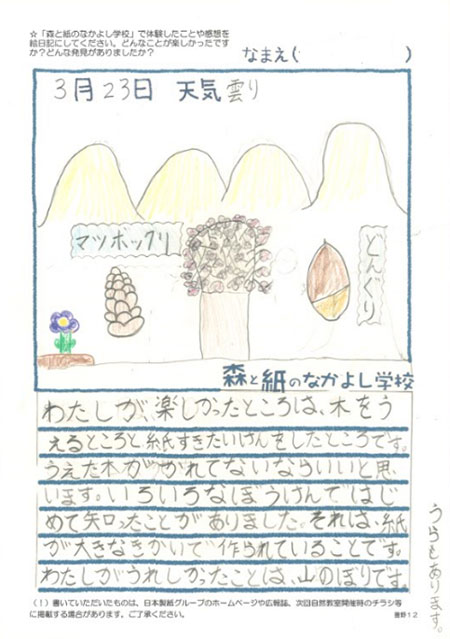 ☆「森と紙のなかよし学校」で体験したことや感想を
絵日記にしてください。どんなことが楽しかったです
か？どんな発見がありましたか？
なまえ(　　　　　)
3月23日　天気 曇り
マツボックリ
どんぐり
森と紙のなかよし学校
わたしが、楽しかったところは、木をう
えるところと紙すきたいけんをしたところです。
うえた木がかれてないならいいと思
います。いろいろなぼうけんではじ
めて知ったことがありました。それは、紙
が大きなきかいで作られていることです。
わたしがうれしかったことは、山のぼりです。
うらもあります。
(！)書いていただいたものは、日本製紙グループのホームページや広報誌、次回自然教室開催時のチラシ等
に掲載する場合があります。ご了承ください。